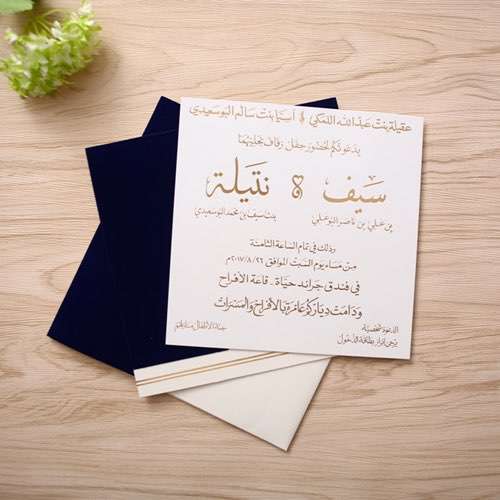 عقيلة بنت عبدالله اللمكي & آسيا بنت سالم البوسعيدي
يدعونكم لحضور حفل زفاف نجليهما
سيف & نتيلة
بن علي بن ناصر البوعلي بنت سيف بن محمد البوسعيدي
وذلك في تمام الساعة الثامنة
من مساء يوم السبت الموافق ٢٠١٧/٨/٢٦م
في فندق جراند حياة .. قاعة الأفراح
ودامت دياركم عامرة بالأفراح والمسرات
الدعوة شخصية
يرجى إبراز بطاقة الدخول
جنة الأطفال منازلهم